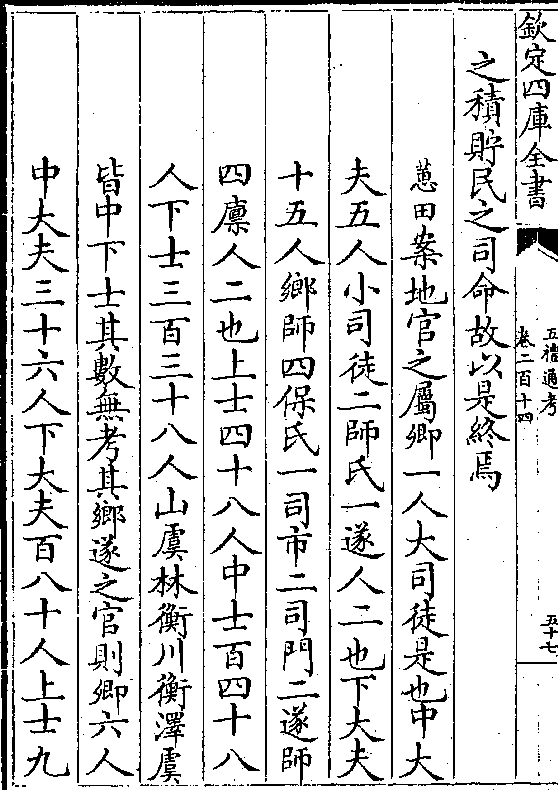 欽定四庫全書
五禮通考
卷二百十四
五十七
之積貯民之司命故以是終焉
蕙田案地官之屬卿一人大司徒是也中大
夫五人小司徒二師氏一遂人二也下大夫
十五人鄉師四保氏一司市二司門二遂師
四廩人二也上士四十八人中士百四十八
人下士三百三十八人山虞林衡川衡澤虞
皆中下士其數無考其鄉遂之官則卿六人
中大夫三十六人下大夫百八十人上士九